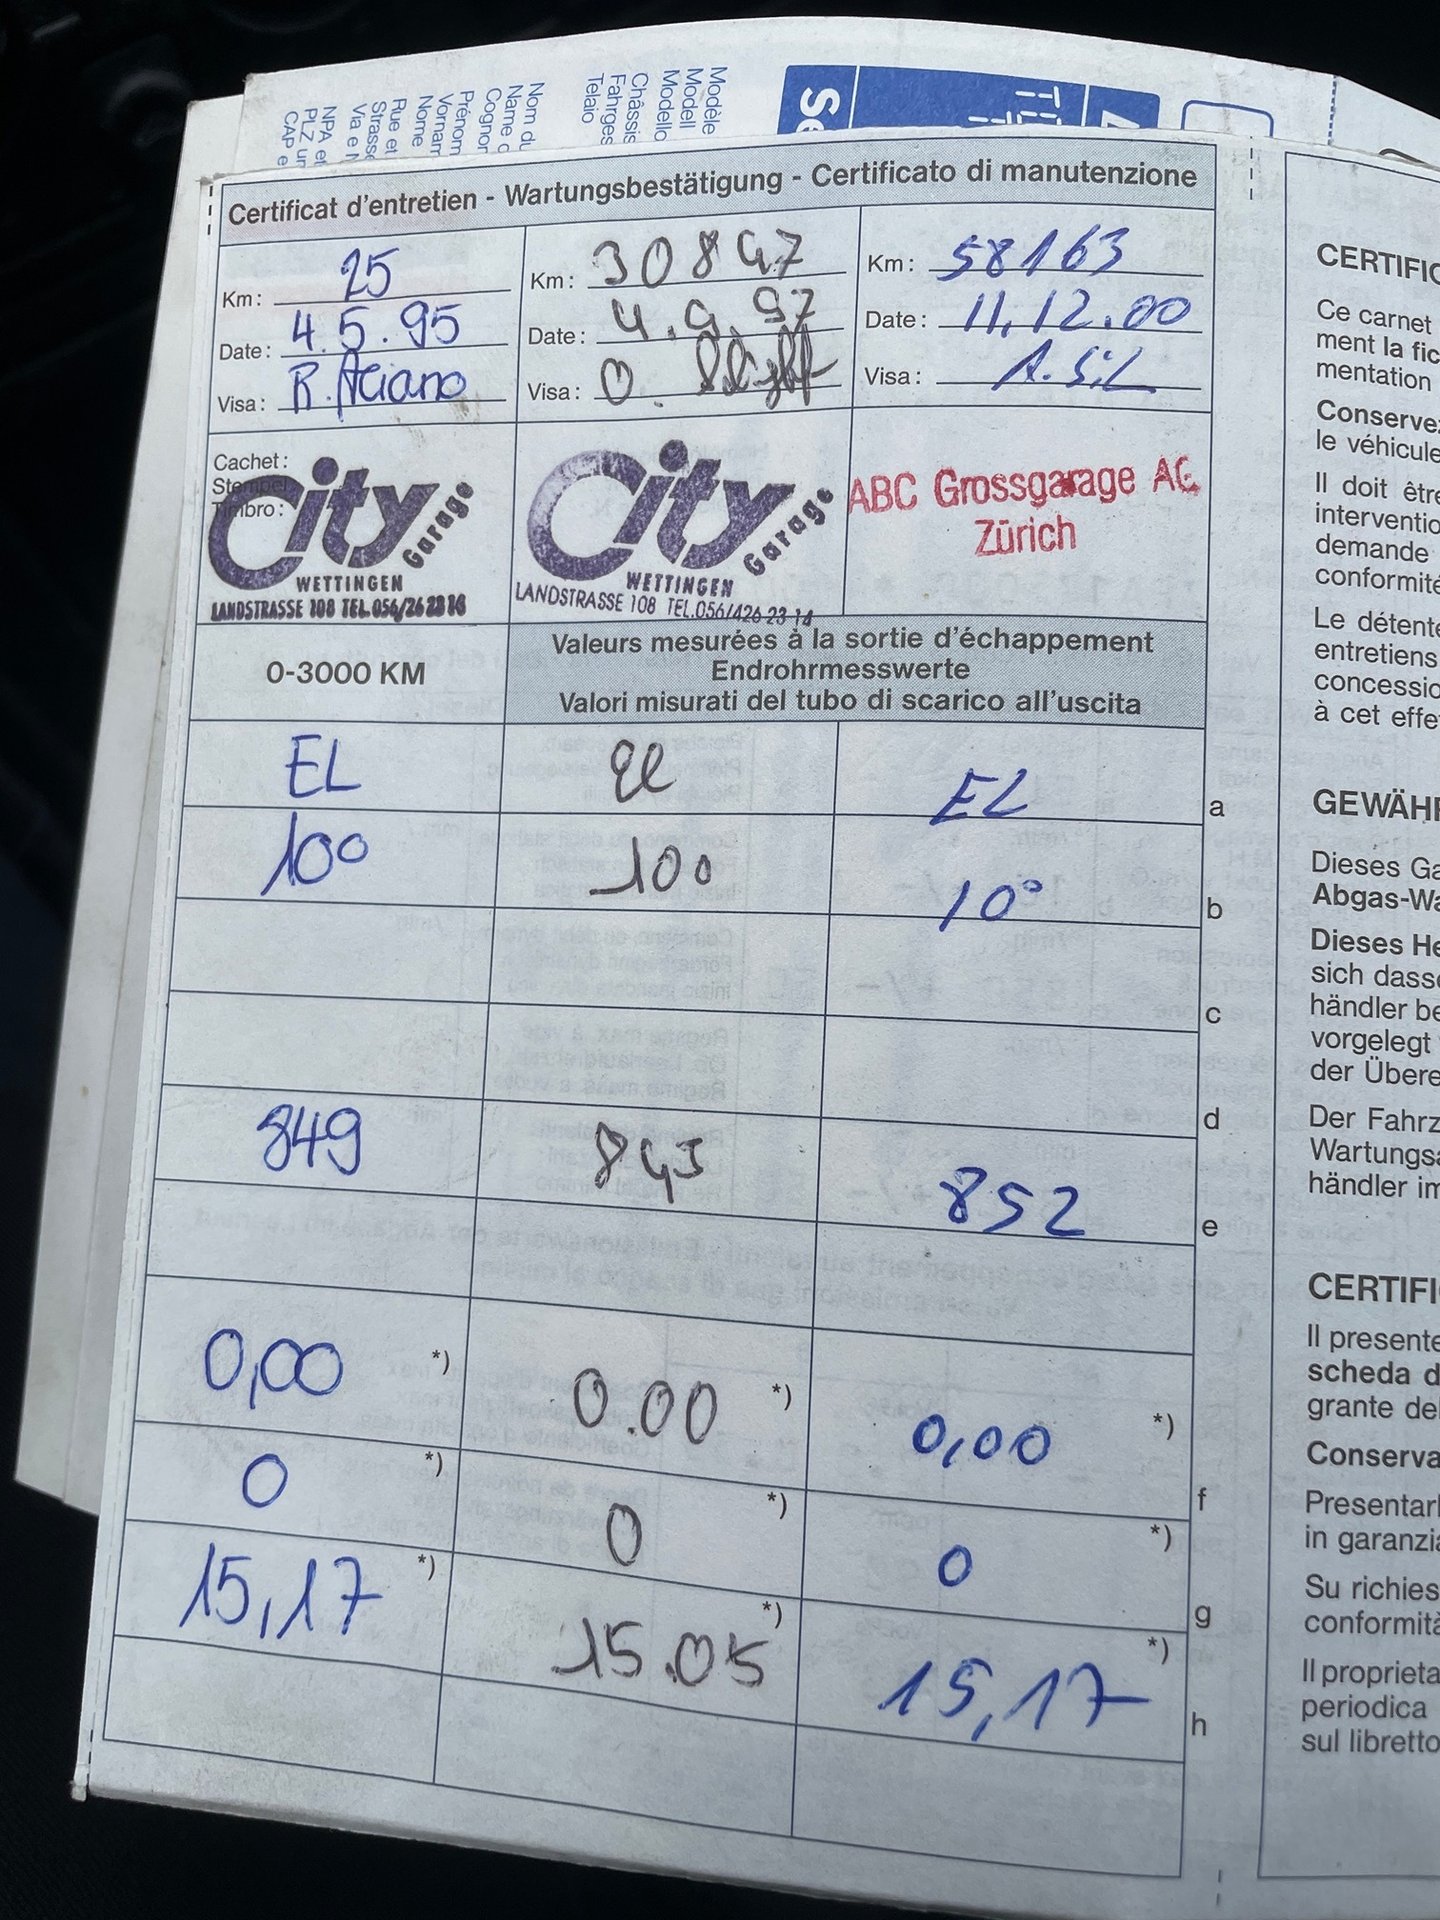 Modèle
Modell
Modello
Châssis
Telaio
Nom du
Prénom
Nome
Rue et
CAP e
Certificat d'entretien - Wartungsbestätigung - Certificato di manutenzione
Km: 25
Date: 4.5.95
Visa:
Km: 30847
Date: 4.9.97
Visa:
Km: 58163
Date: 11.12.00
Visa: A. Sil
Cachet:
Stempel
Timbro:
City Garage
WETTINGEN
LANDSTRASSE 108 TEL.056/26 23 14
City Garage
WETTINGEN
LANDSTRASSE 108 TEL.056/426 23 14
ABC Grossgarage AG
Zürich
0-3000 KM
Valeurs mesurées à la sortie d'échappement
Endrohrmesswerte
Valori misurati del tubo di scarico all'uscita
EL el EL a
10° 10° 10° b
c
d
849 843 852 e
0,00 *) 0.00 *) 0,00 *) f
0 *) 0 *) 0 *) g
15,17 *) 15.05 *) 15,17 *) h
CERTIFIC
Ce carnet
ment la fic
mentation
Conservez
le véhicule
Il doit être
interventio
demande
conformité
Le détente
entretiens
concessio
à cet effe
GEWÄHR
Dieses Ga
Abgas-Wa
Dieses He
sich dasse
händler be
vorgelegt
der Übere
Der Fahrz
Wartungsa
händler im
CERTIFI
Il presente
scheda d
grante del
Conserva
Presentarl
in garanzia
Su richies
conformità
Il proprieta
periodica
sul libretto